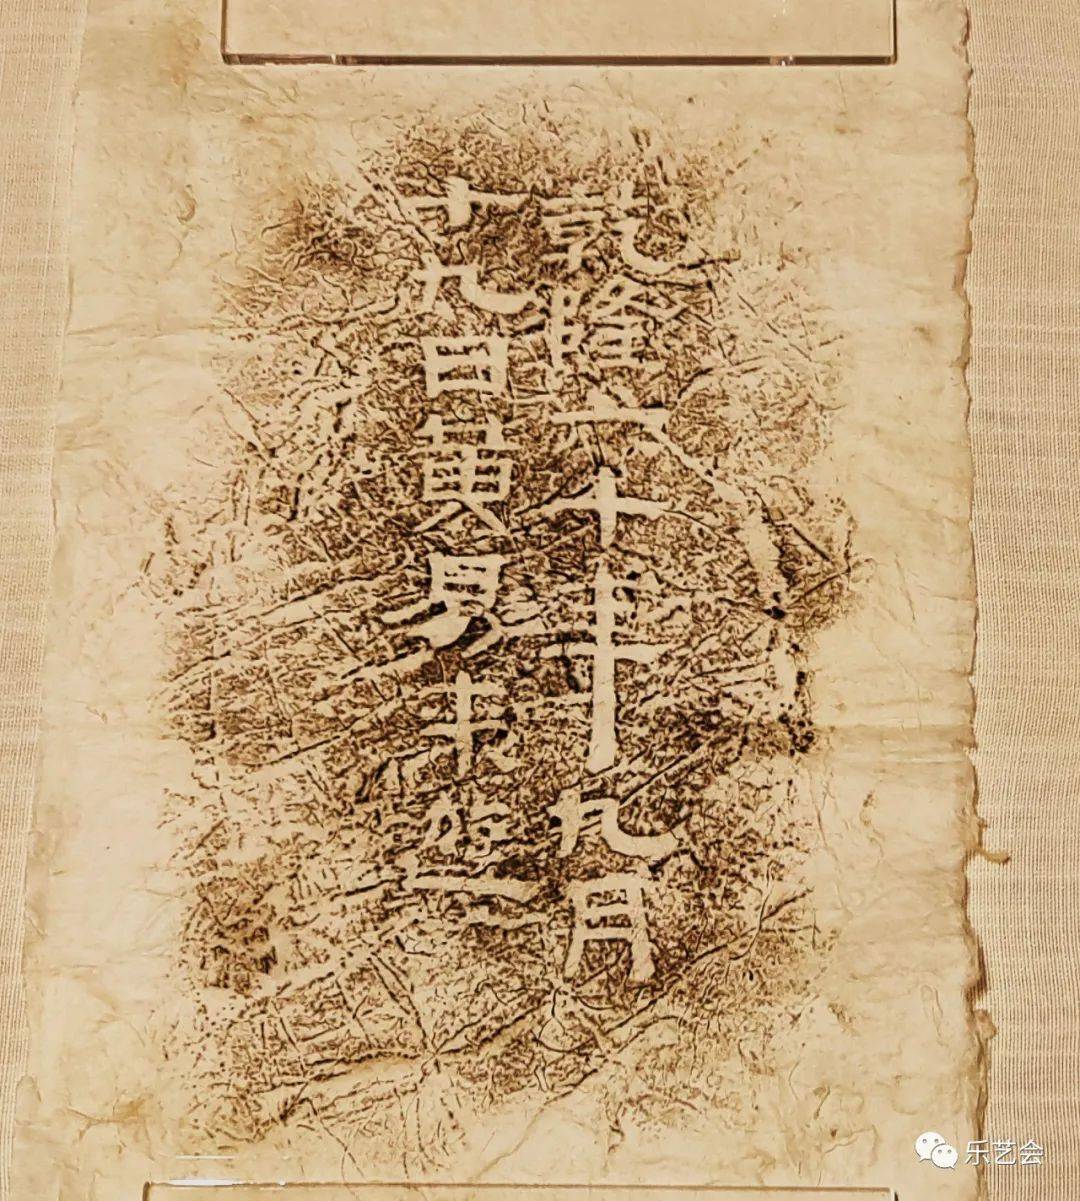 乾隆六十年九月
十九日黄易来
乐艺会